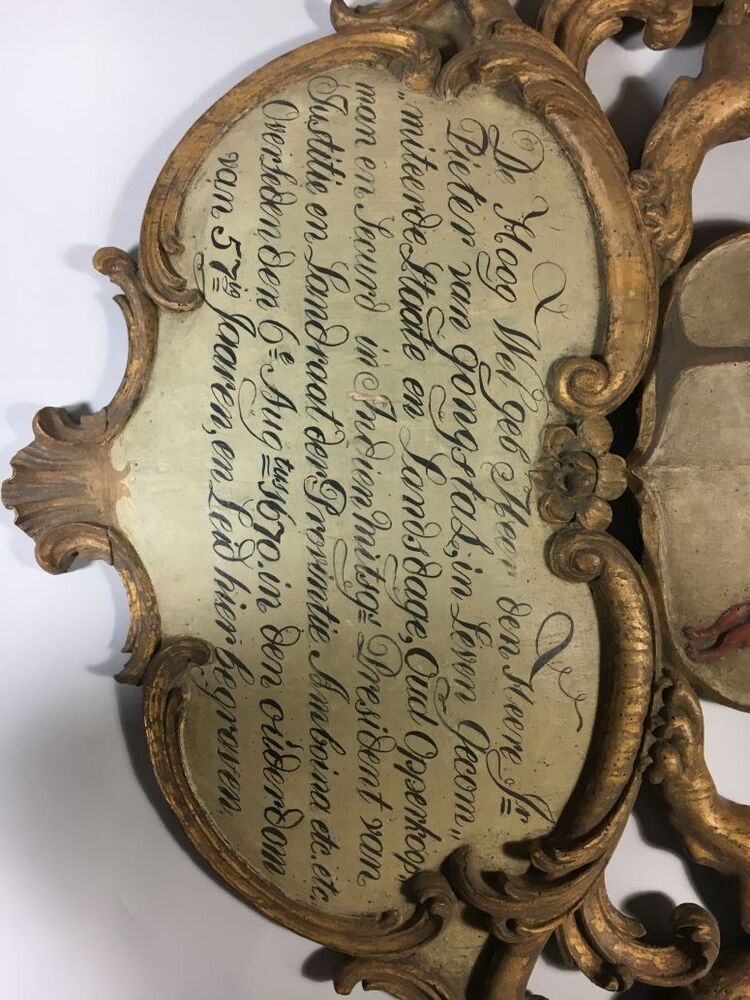 De Hoog Wel geb Heer den Heere Jr=
Pieter van Jongstal, in Leven Gecom„
„miteerde Staate en Landsdage, Oud Opperkoop„
man en Secund in Indien, mitsgs= President van
Justitie en Landraat der Provintie Amboina etc. etc.
Overleden den 6e= Augtus= 1670. in den ouderdom
van 57ig= Jaaren, en Leid hier begraven.